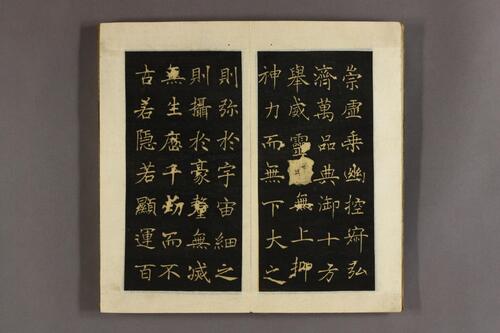 崇虛乗幽控寂弘
濟萬品典御十方
舉威靈無上抑
神力而無下大之
則弥於宇宙細之
則攝於豪釐無滅
無生歷千劫而不
古若隱若顯運百